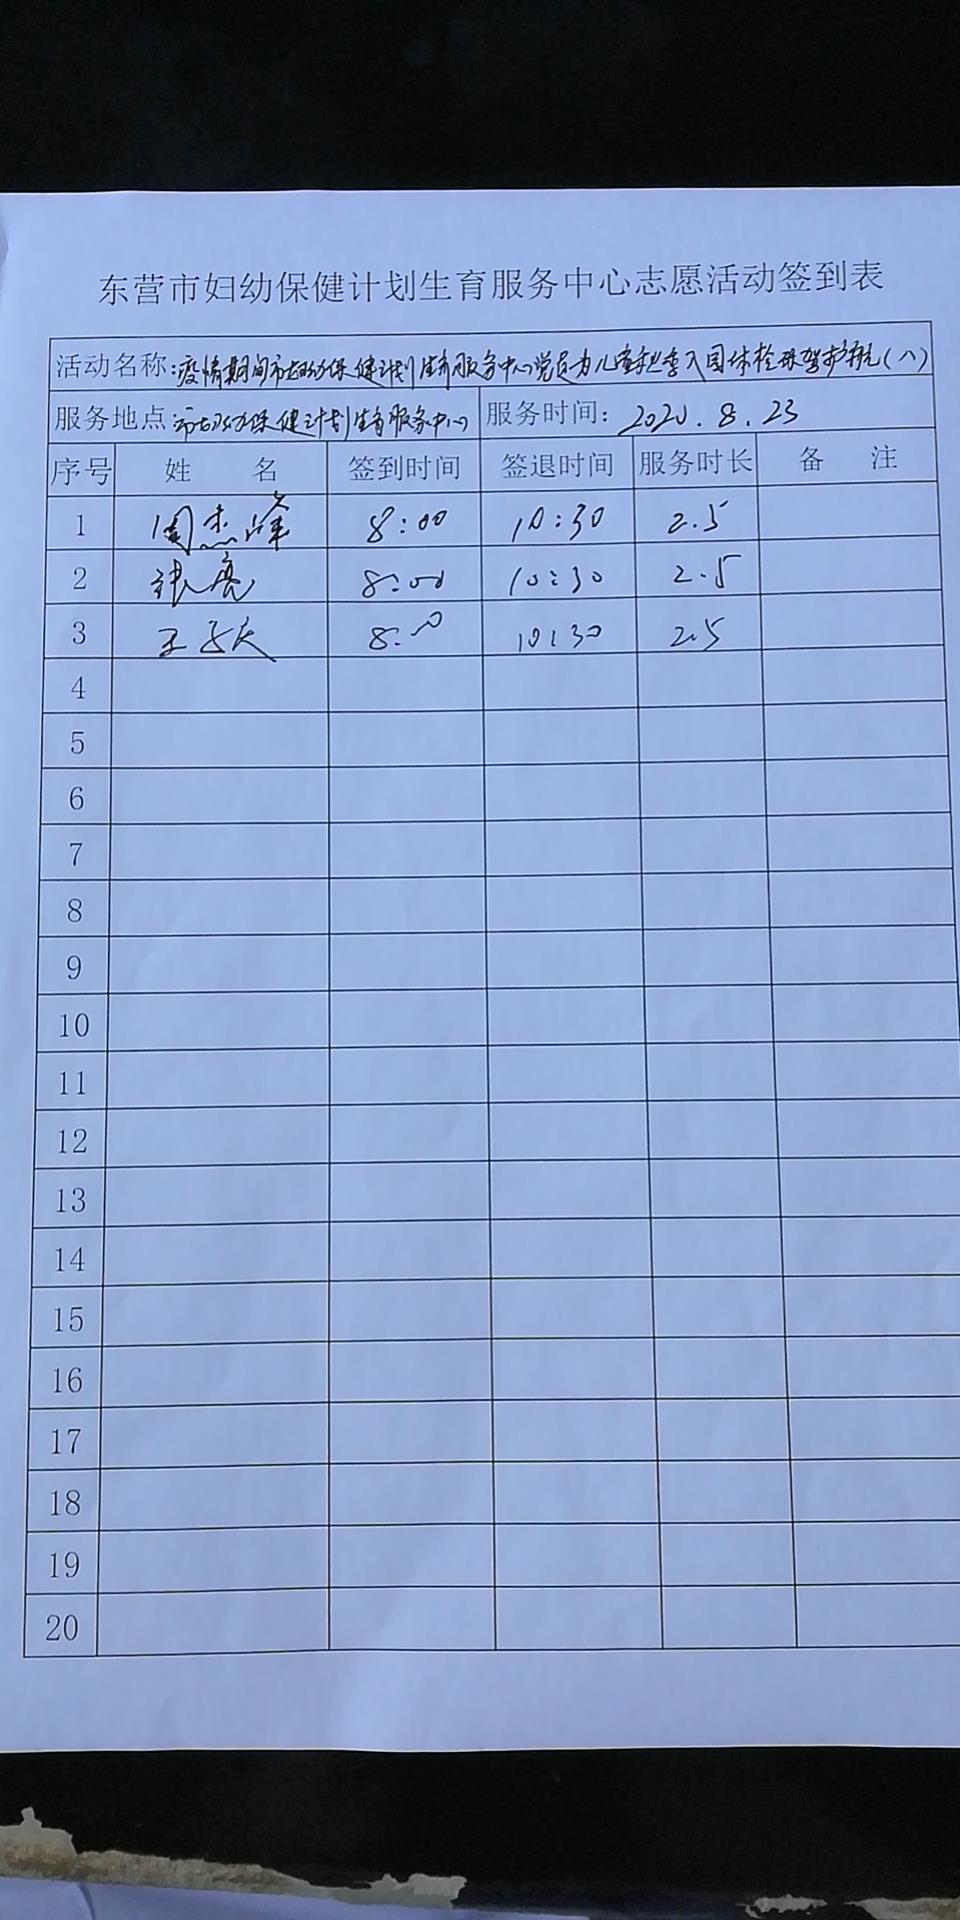 东营市妇幼保健计划生育服务中心志愿活动签到表
活动名称:疫情期间市妇幼保健计划生育服务中心党员为儿童秋季入园体检保驾护航(八)
服务地点:市妇幼保健计划生育服务中心 服务时间:2020.8.23
序号 姓名 签到时间 签退时间 服务时长 备注
1 周杰峰 8:00 10:30 2.5
2 张亮 8:00 10:30 2.5
3 王 8:00 10:30 2.5
4
5
6
7
8
9
10
11
12
13
14
15
16
17
18
19
20